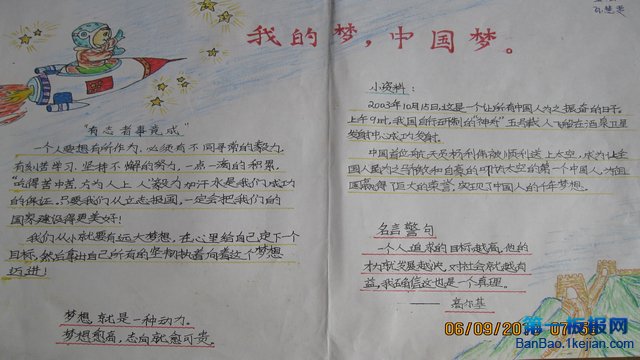 我的梦，中国梦。
"有志者事竟成"
一个人要想有所作为，必须有不同寻常的毅力，
有刻苦学习、坚持不懈的努力，一点一滴的积累，
"吃得苦中苦，方为人上人"毅力加汗水是我们成功
的保证，只要我们从立志报国，一定会把我们的
国家建设得更美好！
我们从小就要有远大梦想，在心里给自己定下一个
目标，然后拿出自己所有的坚韧执着向着这个梦想
迈进！
梦想，就是一种动力。
梦想愈高，志向就愈可贵。
小资料：
2003年10月15日，这是一个让所有中国人为之振奋的日子。
上午9时，我国自行研制的"神舟"五号载人飞船在酒泉卫星
发射中心成功发射。
中国首位航天员杨利伟被顺利送上太空，成为让全
国人民为之骄傲和自豪的叩访太空的第一个中国人，为祖
国赢得了巨大的荣誉，实现了中国人的千年梦想。
名言警句
一个人追求的目标越高，他的
才力就发展越快，对社会就越有
益，我确信这也是一个真理。
——高尔基
06/09/20
第一板报网
BanBao.1kejian.com